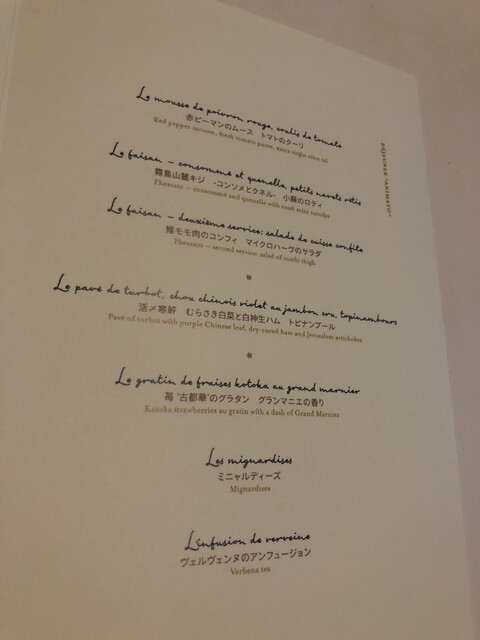 Le mousse de poivron rouge, coulis de tomate
赤ピーマンのムース トマトのクーリ
Red pepper mousse, fresh tomato puree, extra virgin olive oil
DÉJEUNER "ANIMATO"
Le faisan – consommé et quenelle, petits navets rôtis
霧島山麓キジ -コンソメとクネル- 小蕪のロティ
Pheasant – consommé and quenelle with roast mini turnips
Le faisan – deuxième service: salade de cuisse confite
雉モモ肉のコンフィ マイクロハーヴのサラダ
Pheasant – second service: salad of confit thigh
Le pavé de turbot, chou chinois violet au jambon cru, topinambours
活〆寒鮃 むらさき白菜と白神生ハム トピナンブール
Pavé of turbot with purple Chinese leaf, dry-cured ham and Jerusalem artichokes
Le gratin de fraises kotoka au grand marnier
苺 "古都華"のグラタン グランマニエの香り
Kotoka strawberries au gratin with a dash of Grand Marnier
Les mignardises
ミニャルディーズ
Mignardises
L'infusion de verveine
ヴェルヴェンヌのアンフュージョン
Verbena tea